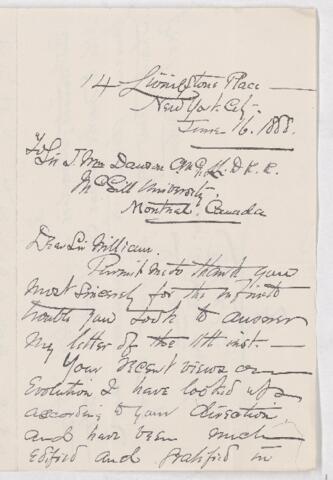 14 Livingstone Place
New York City
June 16. 1888.
To Sir J Wm Dawson C.M.G.
McGill University
Montreal. Canada
Dear Sir William.
Permit me to thank you
most sincerely for the infinite
trouble you took to answer
my letter of the 11th inst. —
Your recent views on
Evolution I have looked up
according to your direction
and have been much
edified and gratified in